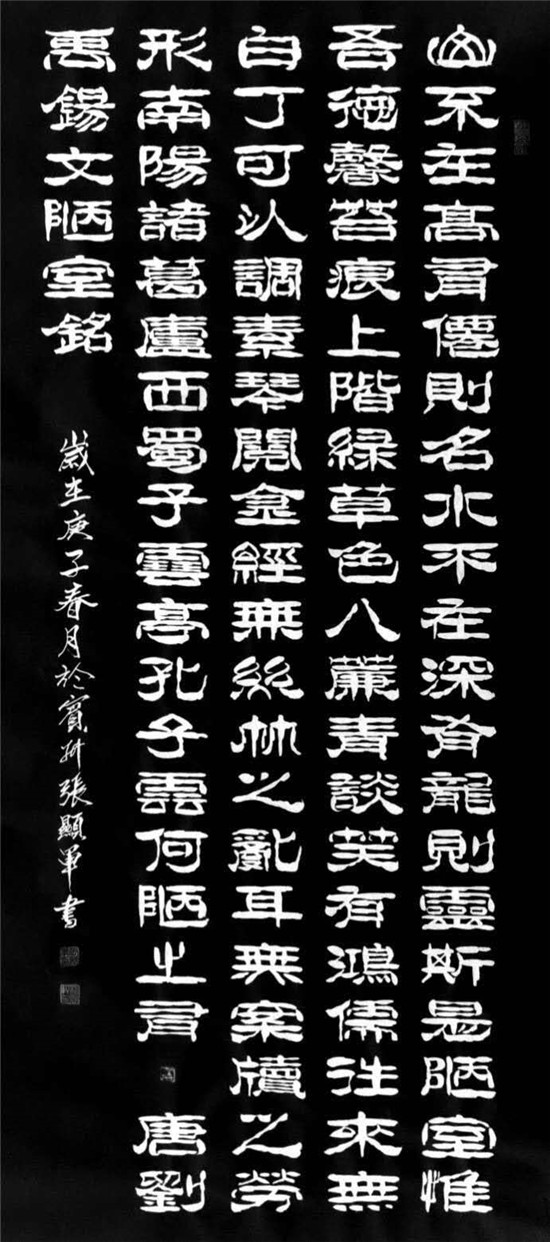 山不在高有僊則名水不在深有龍則靈斯是陋室惟
吾德馨苔痕上階綠草色入簾青談笑有鴻儒往來無
白丁可以調素琴閱金經無絲竹之亂耳無案牘之勞
形南陽諸葛廬西蜀子雲亭孔子雲何陋之有 唐劉
禹錫文陋室銘
歲在庚子春月於賓州張顯軍書